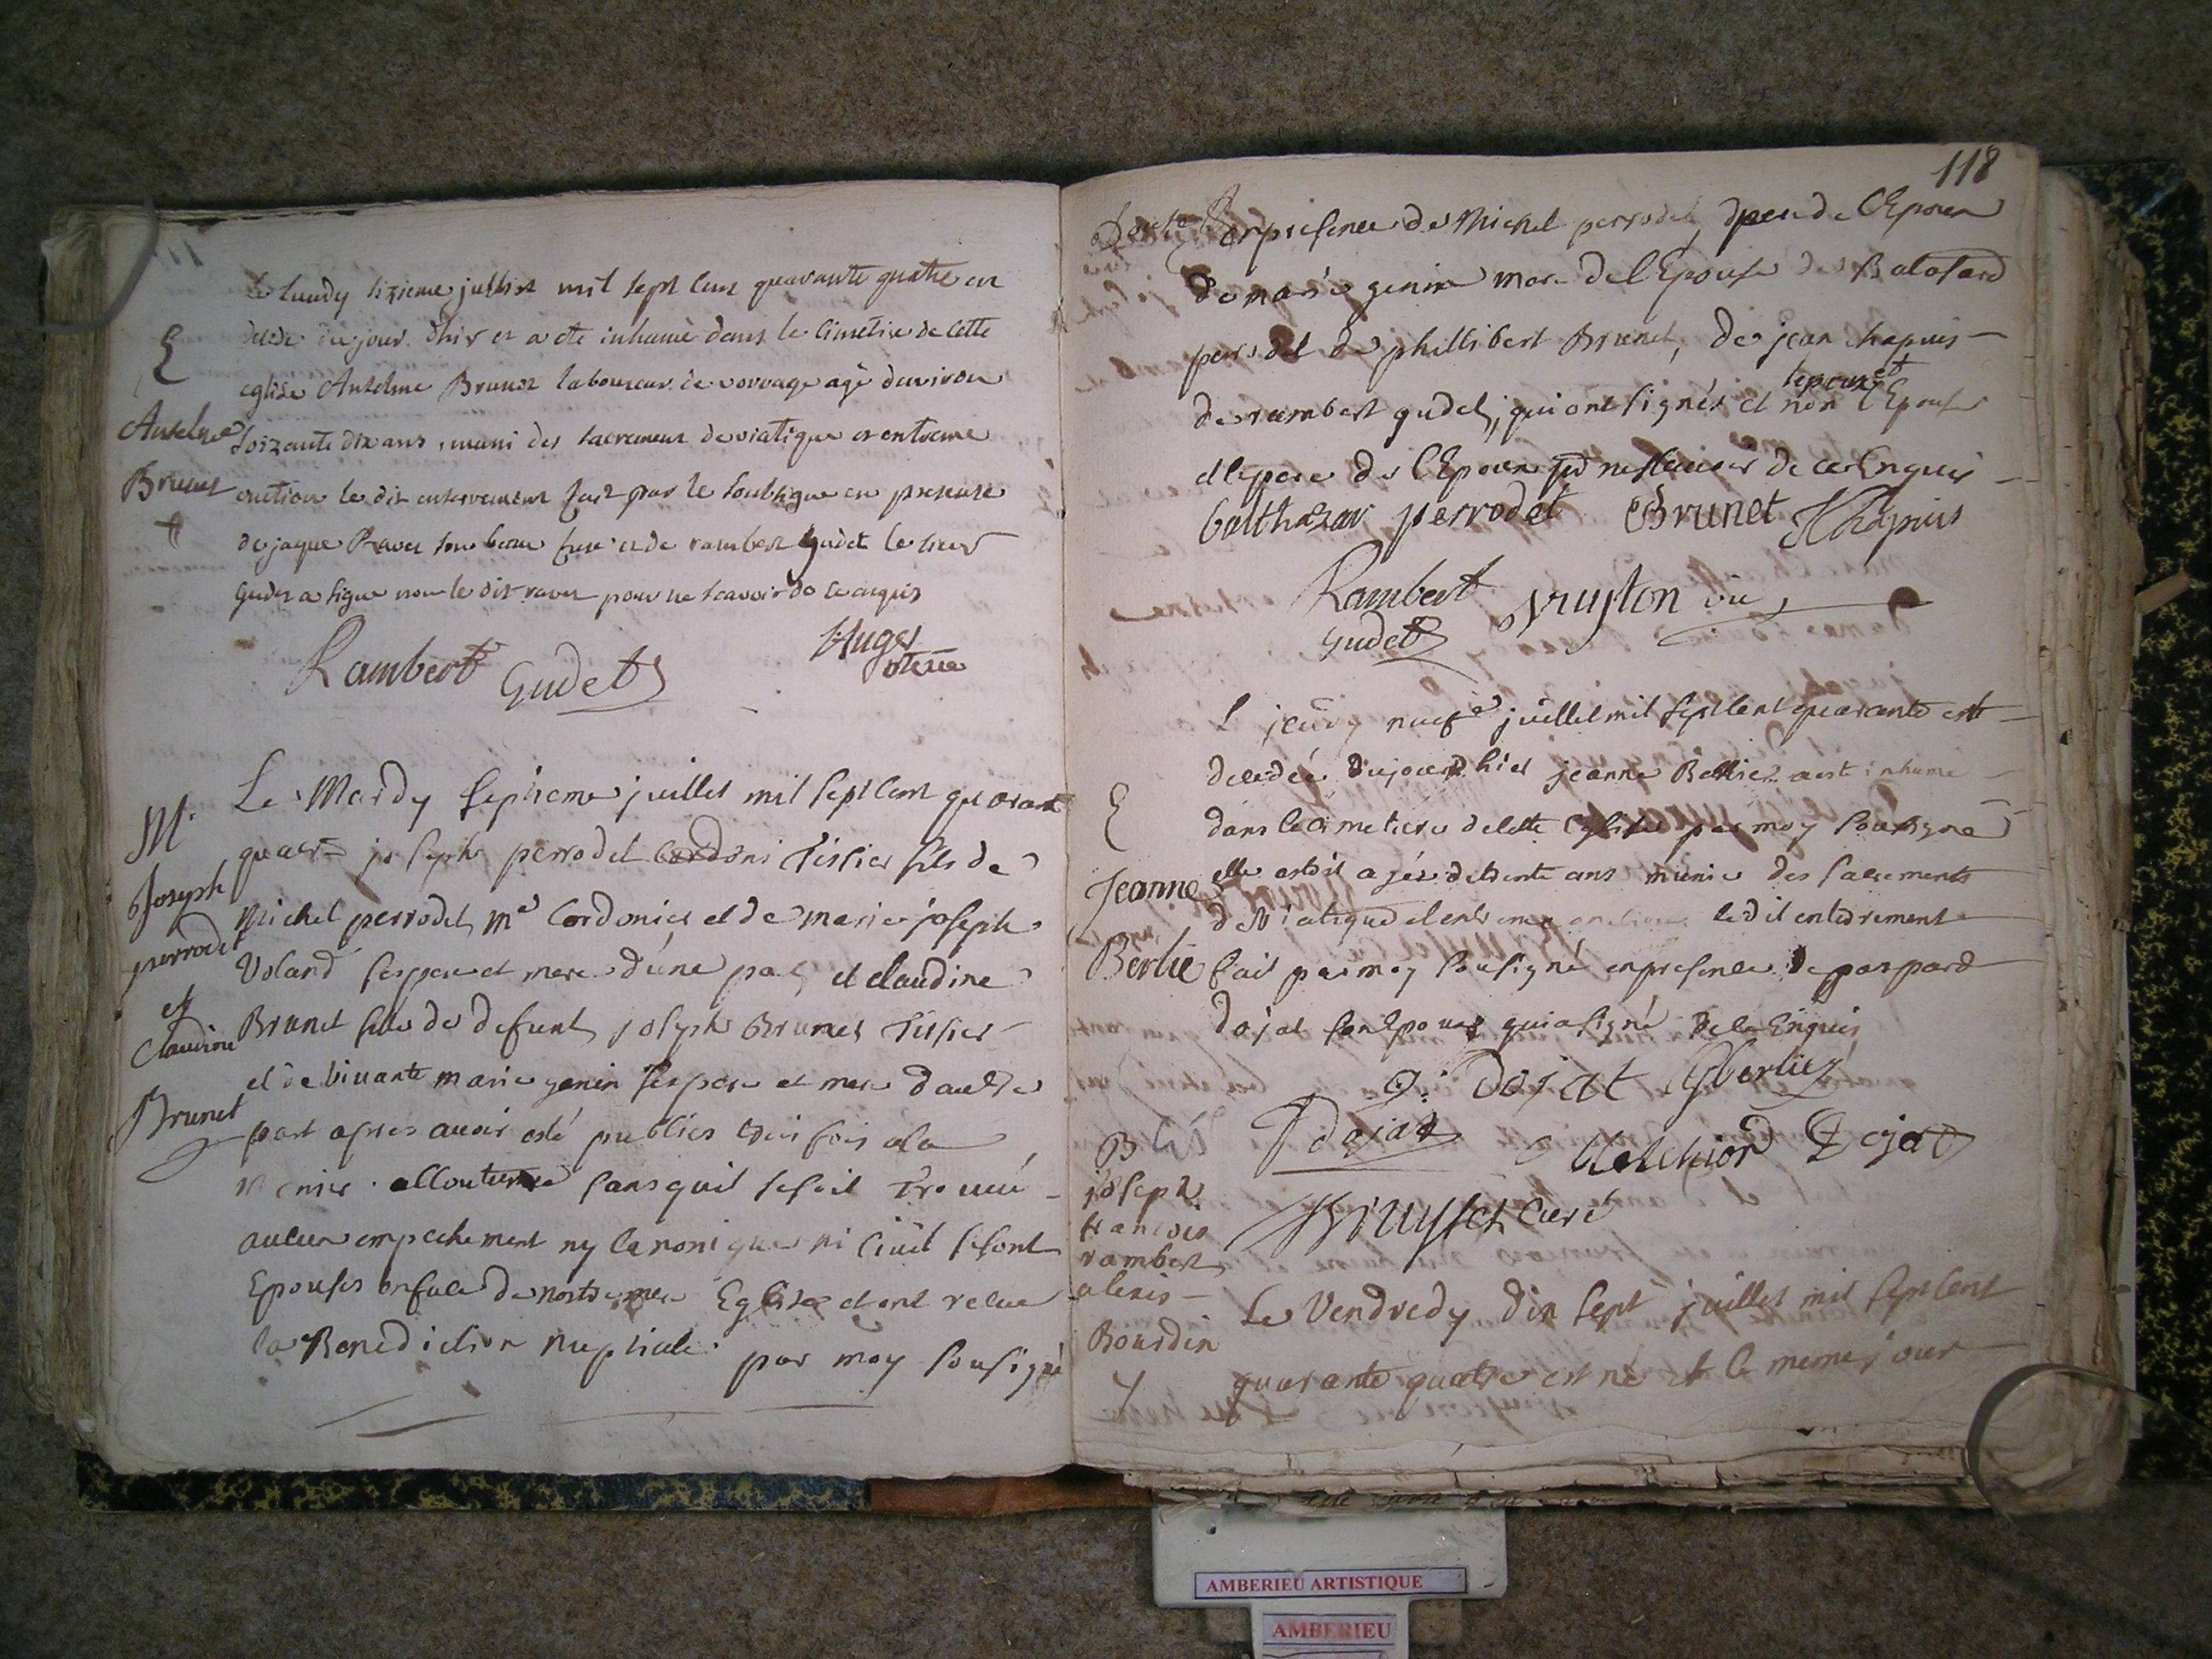 Le lundy sixieme juillet mil sept cent quarante quatre est
decede du jour d'hir et a ete inhumé dans le Cimetire de Cette
E
eglise Anselme Brunet laboureur de vorvage agé denviron
Anselme
soixante dix ans, muni des sacrement de viatique et extreme
Brunet
onction le dit enterrement fait par le soubsigne en presence
de jaque Raver son beau frere et de rambert gudet le sieur
gudet a signe non le dit raver pour ne scavoir de ce enquis
Rambert Gudet
Auger
vicaire
Le Mardy septieme juillet mil sept cent quarante
M.
quatre joseph perrodet Cordoni tissier fils de
Joseph
perrodet
michel perrodet me Cordonier et de marie joseph
Voland ses pere et mere d'une part et claudine
et
Claudine
Brunet
Brunet fille de defunt joseph Brunet tissier
et de vivante marie genin ses pere et mere d'autre
part apres avoir esté publies trois fois a la
maniere accoutumé sans quil se soit trouué
aucun empechement ny canonique ni ciuil se sont
Epousés en face de nostre mere Eglise et ont recue
la Benediction nuptiale par moy sousigné
118
en presence de Michel perrodet pere de l'Epoux
de marie genin mere de l'Epouse de Batasard
perrodet de phillibert Brunet, de jean chapuis
de rambert gudet, qui ont signés et non l'Epouse
lepoux et
et le pere de l'Epoux pour ne scauoir de ce Enquis
balthazar perrodet Brunet JChapuis
Rambert
Gudet
Bruyson vic
Le jeudy neufe juillet mil sept cent quarante
decedée du jour d'hier jeanne Bertier a esté inhumé
E
dans le cimetiere de cette Eglise par moy sousigné
Jeanne
elle estoit agée de trente ans munie des sacrements
Berlie
de Viatique et extreme onction ledit enterrement
fait par moy sousigné en presence de gaspard
dojat son Epoux qui a signé de ce Enquis
g. Dojat Cyberliez
P dojat
Melchior Dojat
Bruyset curé
B
joseph
francois
rambert
alexis
Bourdin
Le Vendredy dix sept juillet mil sept cent
quarante quatre est né et le meme jour
AMBERIEU ARTISTIQUE
AMBERIEU